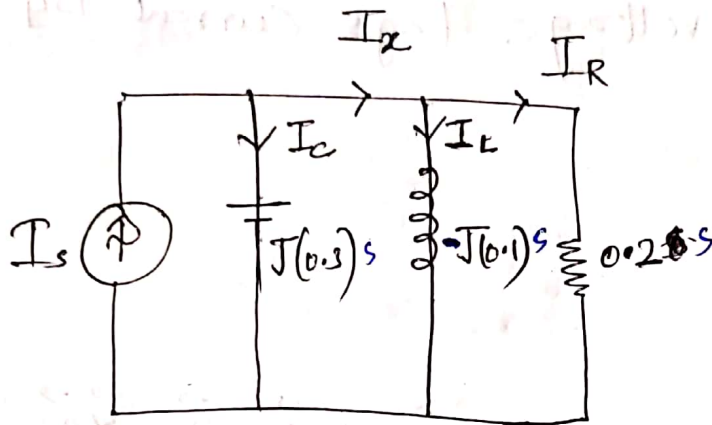 Ix
IR
Ic
IL
Is
J(0.3) s
-J(0.1) s
0.2 s